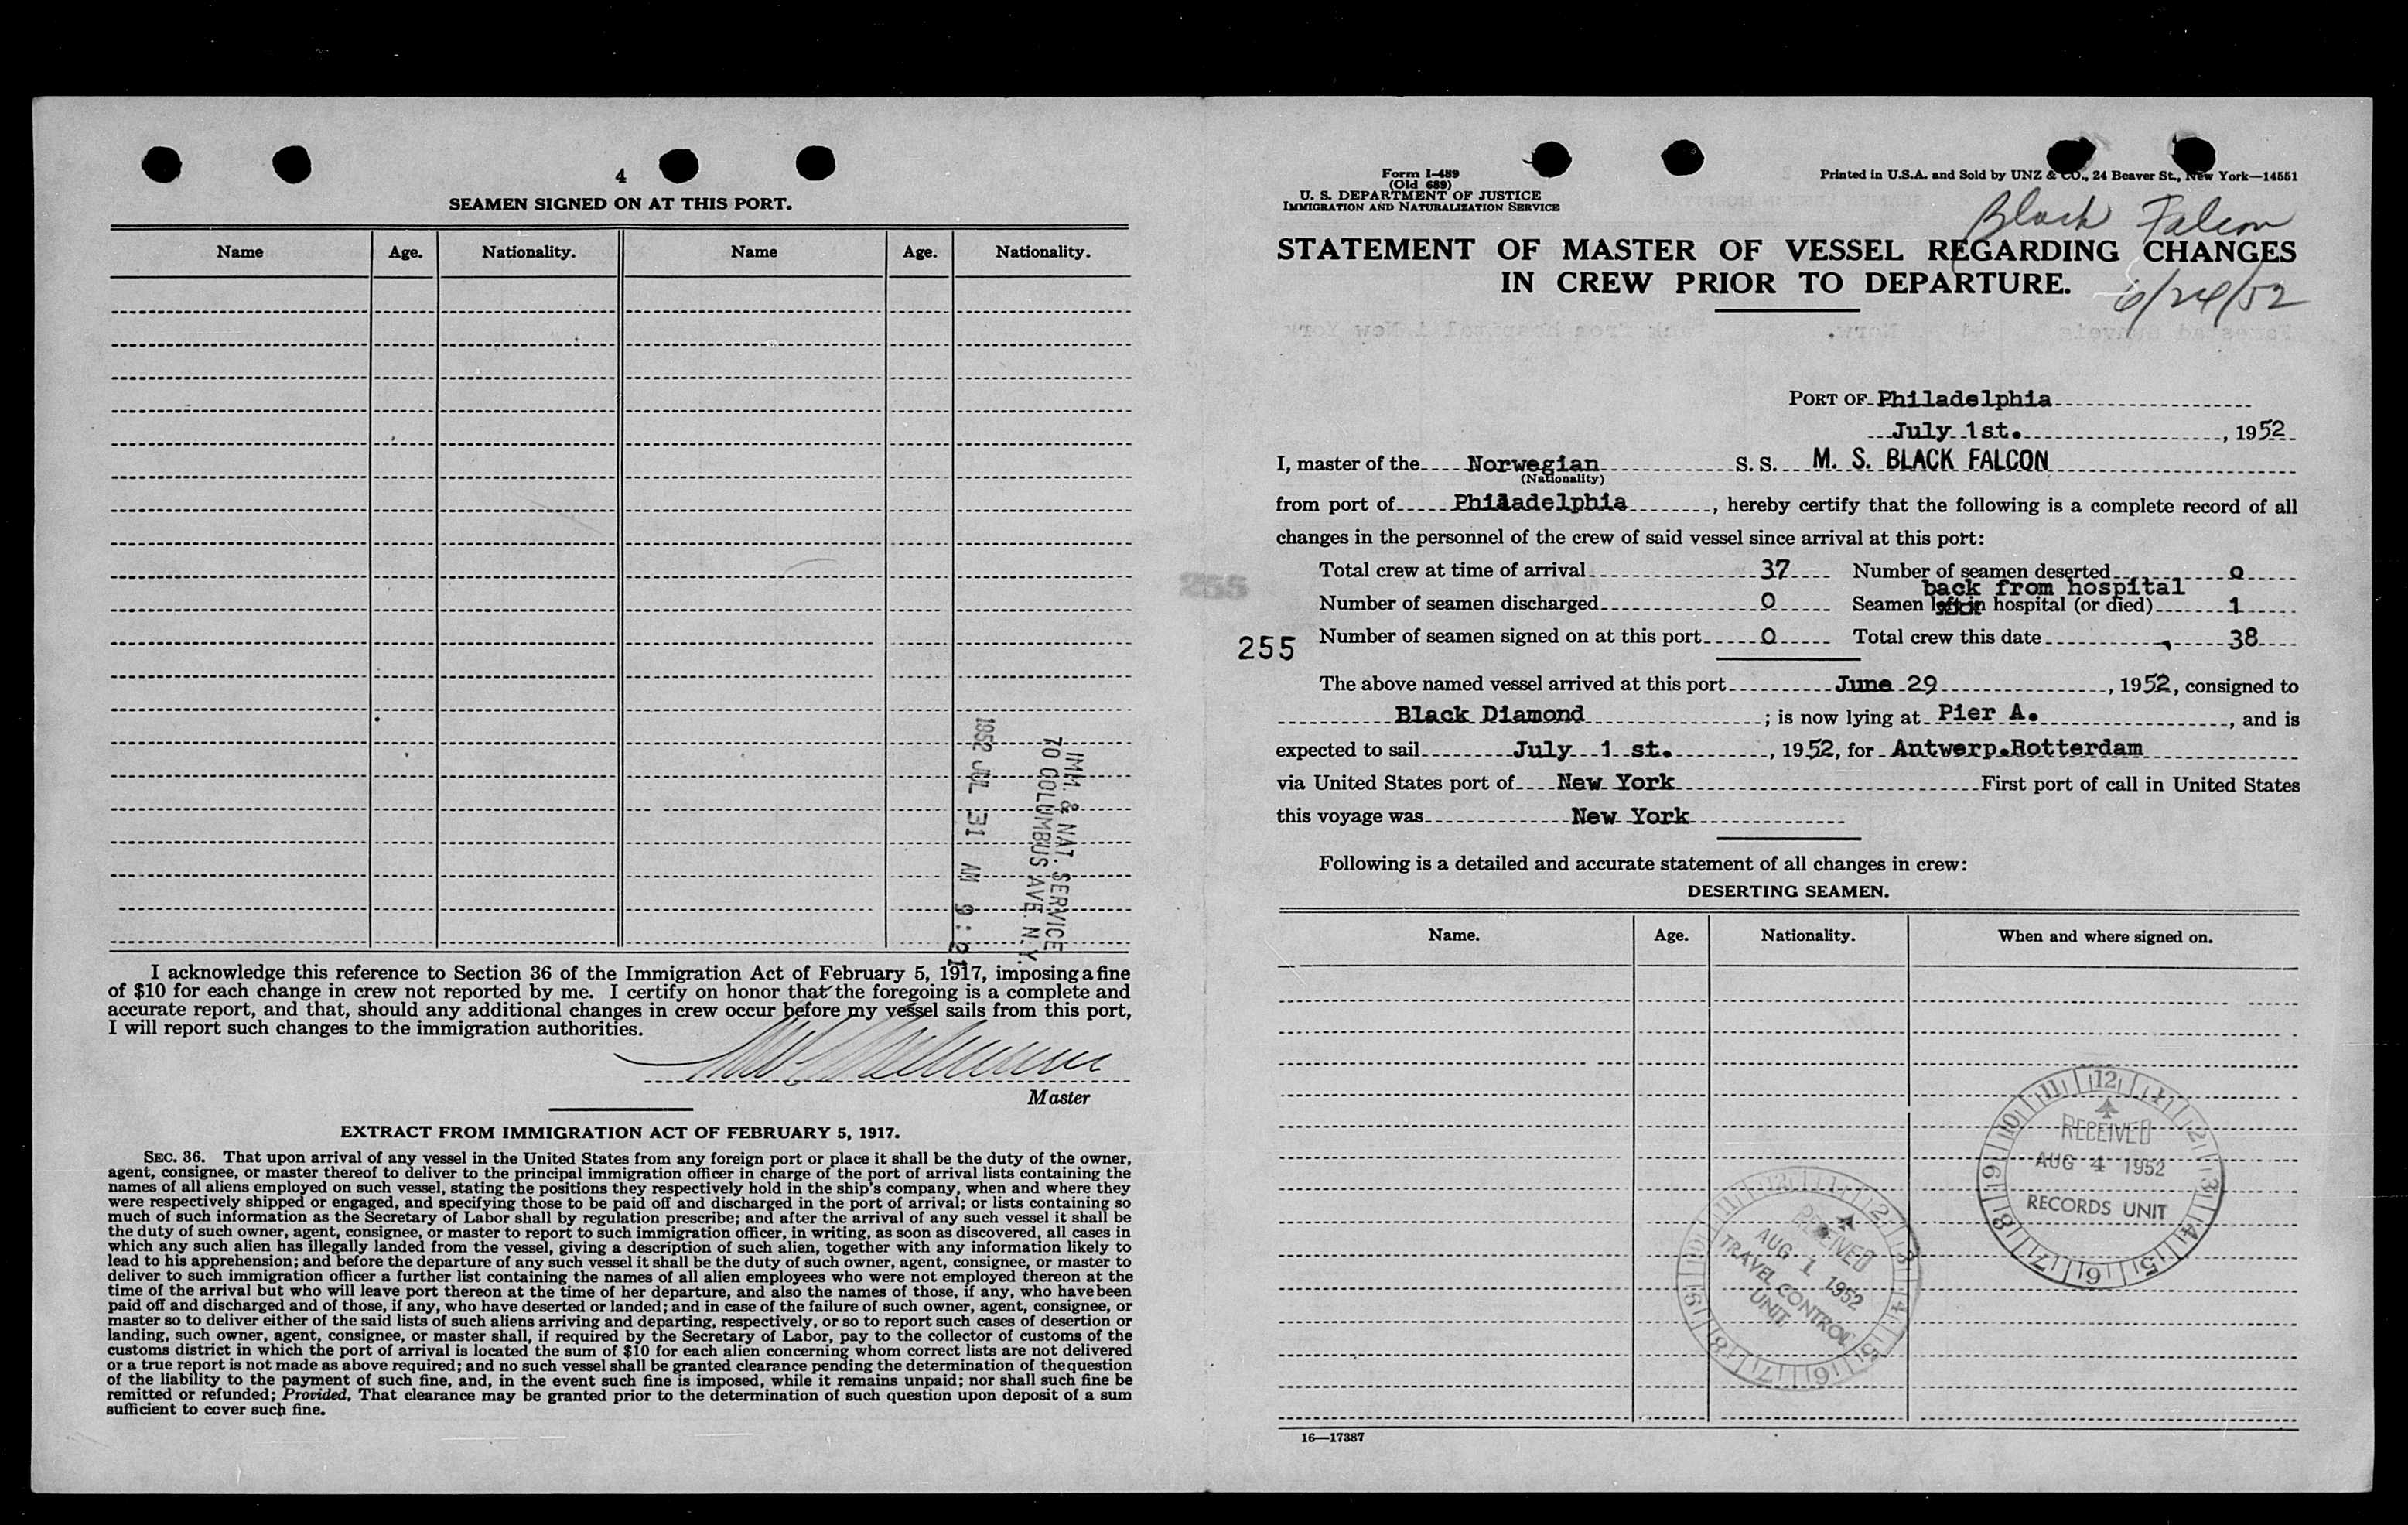 4
SEAMEN SIGNED ON AT THIS PORT.
Name Age. Nationality. Name Age. Nationality.
1952 JUL 31 AM 9:21
IMM. & NAT. SERVICE
70 COLUMBUS AVE. N.Y.
I acknowledge this reference to Section 36 of the Immigration Act of February 5, 1917, imposing a fine
of $10 for each change in crew not reported by me. I certify on honor that the foregoing is a complete and
accurate report, and that, should any additional changes in crew occur before my vessel sails from this port,
I will report such changes to the immigration authorities.
Master
EXTRACT FROM IMMIGRATION ACT OF FEBRUARY 5, 1917.
SEC. 36. That upon arrival of any vessel in the United States from any foreign port or place it shall be the duty of the owner,
agent, consignee, or master thereof to deliver to the principal immigration officer in charge of the port of arrival lists containing the
names of all aliens employed on such vessel, stating the positions they respectively hold in the ship's company, when and where they
were respectively shipped or engaged, and specifying those to be paid off and discharged in the port of arrival; or lists containing so
much of such information as the Secretary of Labor shall by regulation prescribe; and after the arrival of any such vessel it shall be
the duty of such owner, agent, consignee, or master to report to such immigration officer, in writing, as soon as discovered, all cases in
which any such alien has illegally landed from the vessel, giving a description of such alien, together with any information likely to
lead to his apprehension; and before the departure of any such vessel it shall be the duty of such owner, agent, consignee, or master to
deliver to such immigration officer a further list containing the names of all alien employees who were not employed thereon at the
time of the arrival but who will leave port thereon at the time of her departure, and also the names of those, if any, who have been
paid off and discharged and of those, if any, who have deserted or landed; and in case of the failure of such owner, agent, consignee, or
master so to deliver either of the said lists of such aliens arriving and departing, respectively, or so to report such cases of desertion or
landing, such owner, agent, consignee, or master shall, if required by the Secretary of Labor, pay to the collector of customs of the
customs district in which the port of arrival is located the sum of $10 for each alien concerning whom correct lists are not delivered
or a true report is not made as above required; and no such vessel shall be granted clearance pending the determination of the question
of the liability to the payment of such fine, and, in the event such fine is imposed, while it remains unpaid; nor shall such fine be
remitted or refunded; Provided, That clearance may be granted prior to the determination of such question upon deposit of a sum
sufficient to cover such fine.
Form I-489
(Old 689)
U. S. DEPARTMENT OF JUSTICE
IMMIGRATION AND NATURALIZATION SERVICE
Printed in U.S.A. and Sold by UNZ & CO., 24 Beaver St., New York—14551
Black Falcon
STATEMENT OF MASTER OF VESSEL REGARDING CHANGES
IN CREW PRIOR TO DEPARTURE.
6/24/52
PORT OF Philadelphia
July 1st. , 1952
I, master of the Norwegian S. S. M. S. BLACK FALCON
(Nationality)
from port of Philadelphia , hereby certify that the following is a complete record of all
changes in the personnel of the crew of said vessel since arrival at this port:
Total crew at time of arrival 37 Number of seamen deserted 0
back from hospital
Number of seamen discharged 0 Seamen left in hospital (or died) 1
255 Number of seamen signed on at this port 0 Total crew this date 38
255
The above named vessel arrived at this port June 29 , 1952, consigned to
Black Diamond ; is now lying at Pier A. , and is
expected to sail July 1 st. , 1952, for Antwerp.Rotterdam
via United States port of New York First port of call in United States
this voyage was New York
Following is a detailed and accurate statement of all changes in crew:
DESERTING SEAMEN.
Name. Age. Nationality. When and where signed on.
RECEIVED
AUG 4 1952
RECORDS UNIT
RECEIVED
AUG 1 1952
TRAVEL CONTROL
UNIT
16—17387